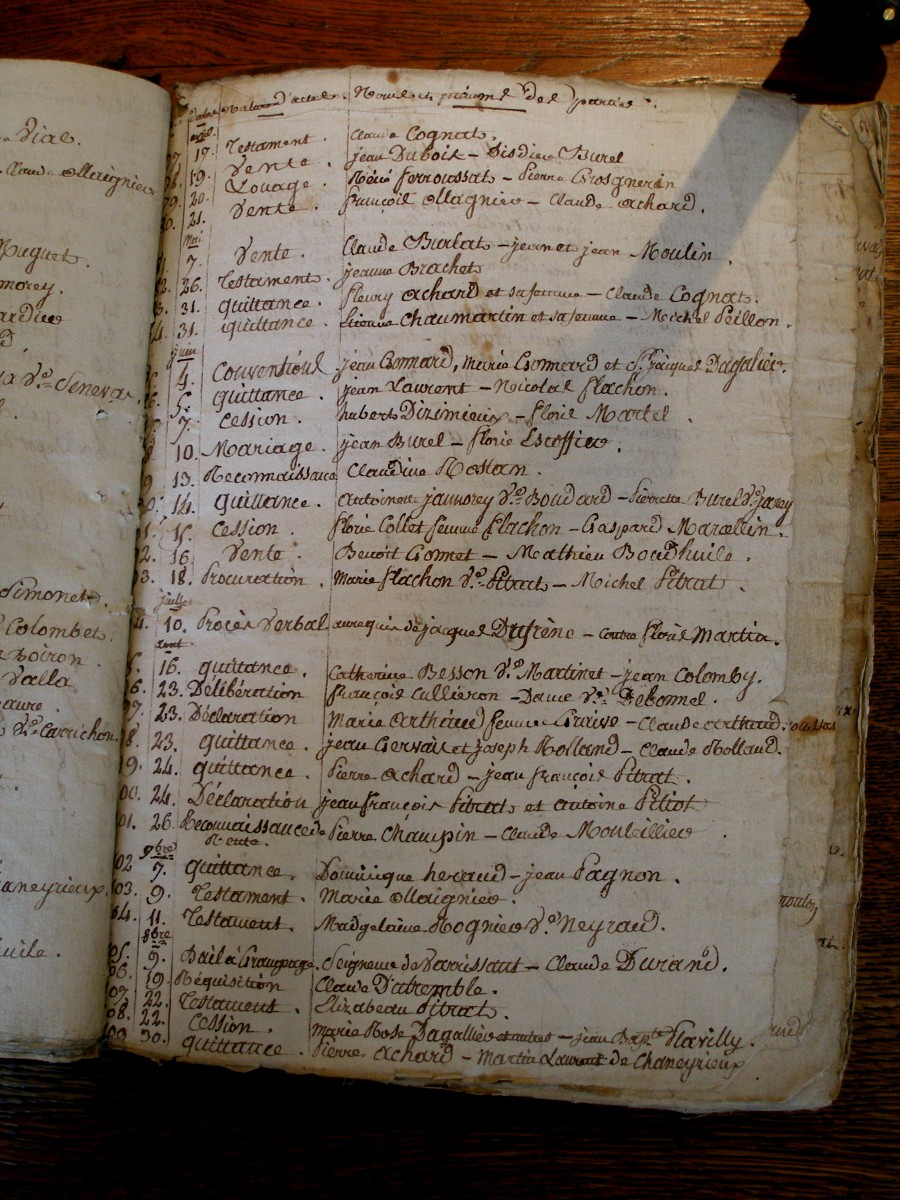 Vial.
Claude Ollaignier
Puguet.
morey.
Vᵉ. Seneva.
Simonet.
Colombet.
Boiron.
Valla
Vᵉ. Carrichon
Chaneyrieux.
huile.
Dates Nature d'actes. Noms et prénoms des parties.
avril.
17. Testament. Claude Cognat.
19. Vente. jean Dubois – Disdier Burel
20. Louage. Réné ferroussat – Pierre Grosgnerin
21. Vente. françois Ollagnier – Claude Achard.
Mai
7. Vente. Claude Burlat – jean et jean Moulin.
26. Testament. jeanne Brachet
31. quittance. fleury Achard et sa femme – Claude Cognat.
31. quittance. Etienne Chaumartin et sa femme – Michel Peillon.
juin
4. Conventions jean Gonnard, Marie Gonnard et Sr. jacques Dagallier.
5. quittance. jean Laurent – Nicolas flachon.
7. Cession. hubert Dizimieux – florie Martel.
10. Mariage. jean Burel – florie Escoffier.
13. Reconnaissance Claudine Rostan.
14. quittance. Antoinette jaumorey Vᵉ. Boudard – Pierrette Burel Vᵉ. jarey
15. Cession. florie Collet femme flachon – Gaspard Marcellin.
16. Vente. Benoit Gonnet – Mathieu Boudhuile.
18. Procuration. Marie flachon Vᵉ. Pitrat – Michel Pitrat.
juillet
10. Procès Verbal aurequis de jacques Dufrène – contre floris Martin.
aout.
16. quittance. Catherine Besson Vᵉ. Martinet – jean Colomby.
23. Délibération françois Cullieron – Dame Vᵉ. Debonnel.
23. Déclaration Marie Arthaud femme Gruive – Claude Arthaud.
23. quittance. jean Gervais et joseph Rolland – Claude Rolland.
24. quittance. Pierre Achard – jean françois Pitrat.
00. 24. Déclaration jean françois Pitrat et Antoine Piliot
01. 26. Reconnaissance de Pierre Chaupin – Claude Mouteillier.
Rente.
9bre
02 7. quittance. Dominique heraud – jean Pagnon.
03. 9. Testament. Marie Ollaignier.
04. 11. Testament. Madgelaine Rognier Vᵉ. Neyraud.
8bre
05. 9. Bail à Grangeage. Seigneur de Varrissant – Claude Durand.
06. 19. Réquisition Claude Datremble.
07. 22. Testament. Elizabeau Pitrat.
08. 22. Cession. Marie Rose Dagallier et autres – jean Bapte. flavilly.
09 30. quittance. Pierre Achard – Martin Laurent de Chaneyrieux